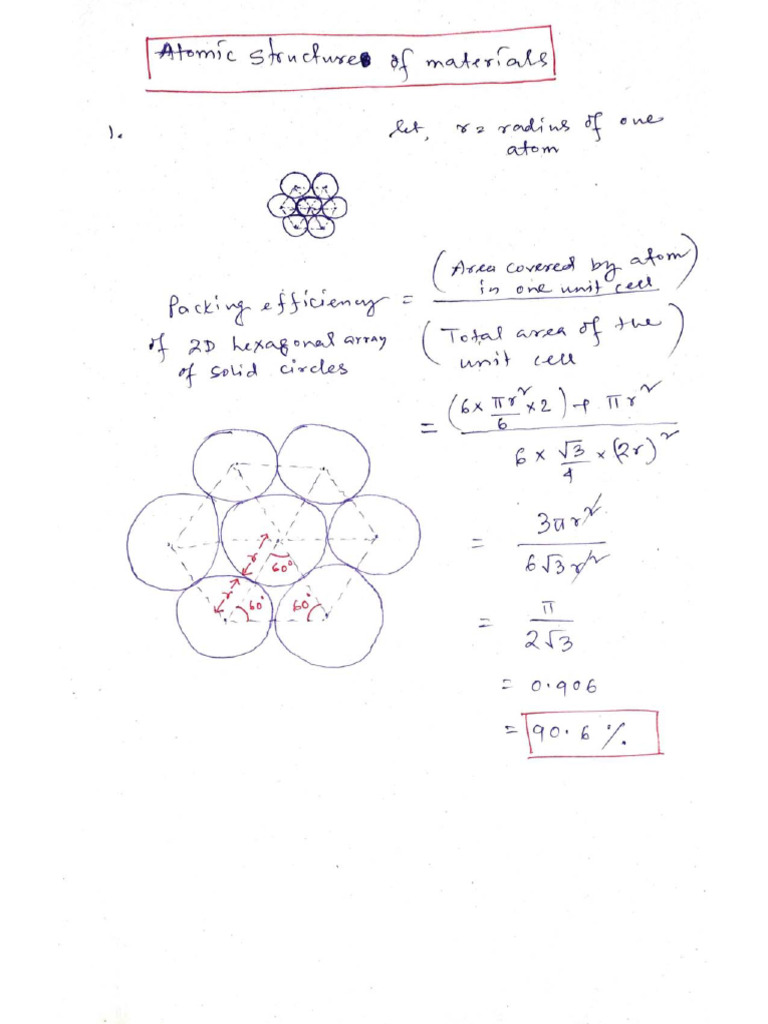 Atomic structures of materials
1.
let, r = radius of one
atom
Packing efficiency
of 2D hexagonal array
of solid circles
= (Area covered by atom
in one unit cell)
(Total area of the
unit cell)
= (6 × πr²/6 × 2) + πr²
6 × √3/4 × (2r)²
= 3πr²
6√3r²
= π
2√3
= 0.906
= 90.6 %.
r
60°
r
60° 60°